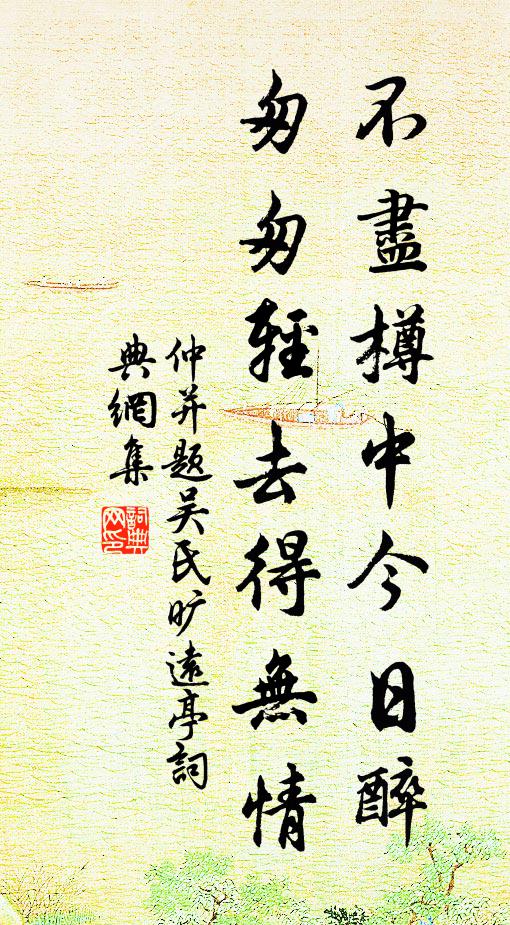 不盡樽中今日醉
匆匆輕去得無情
仲并题吴氏旷遠亭詞
典網集
詞典
网印